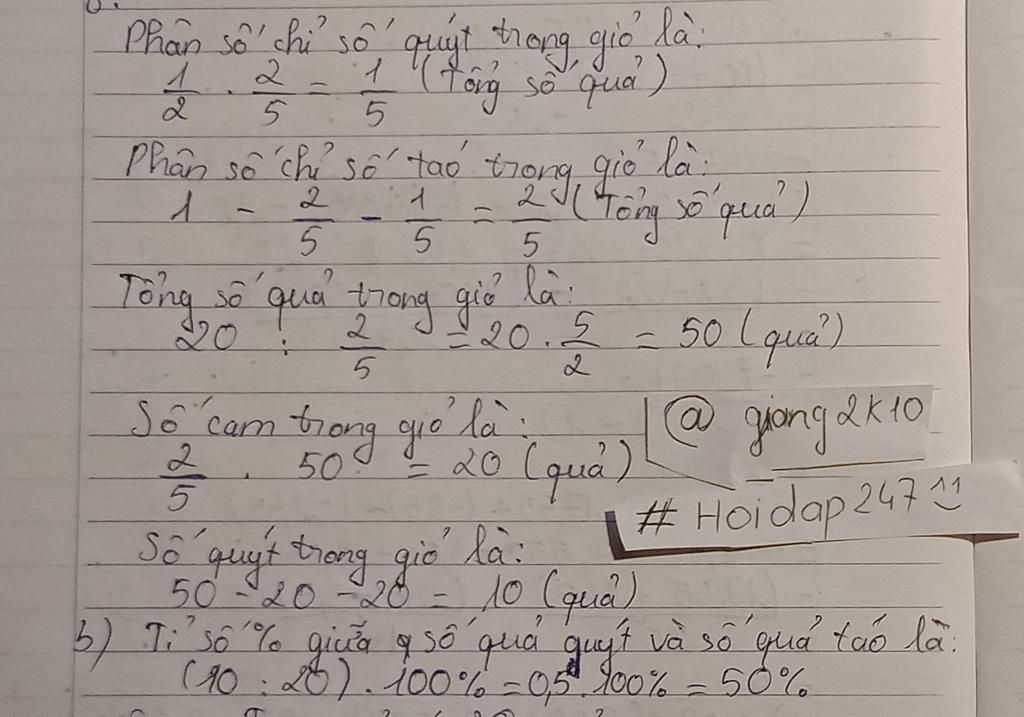 Phân số chỉ số quýt trong giỏ là:
1/2 . 2/5 = 1/5 (Tổng số quả)
Phân số chỉ số táo trong giỏ là:
1 - 2/5 - 1/5 = 2/5 (Tổng số quả)
Tổng số quả trong giỏ là:
20 : 2/5 = 20 . 5/2 = 50 (quả)
Số cam trong giỏ là:
2/5 . 50 = 20 (quả)
@ giang2k10
# Hoidap247
Số quýt trong giỏ là:
50 - 20 - 20 = 10 (quả)
b) Tỉ số % giữa số quả quýt và số quả táo là:
(10 : 20) . 100% = 0,5 . 100% = 50%